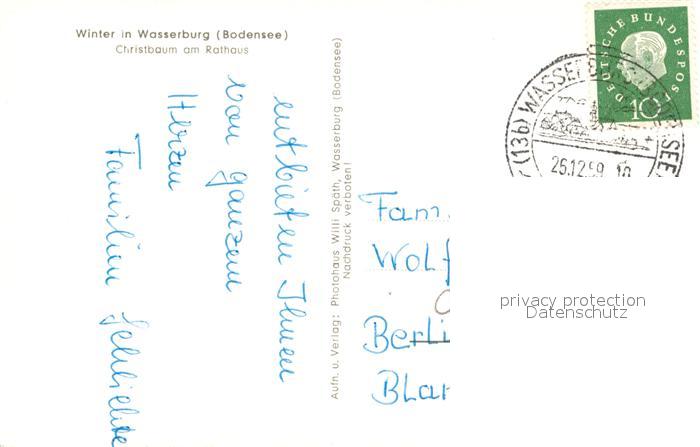 Winter in Wasserburg (Bodensee)
Christbaum am Rathaus
entbieten Ihnen
von ganzem
Herzen
Familien Schlichte
Aufn. u. Verlag: Photohaus Willi Späth, Wasserburg (Bodensee)
Nachdruck verboten!
DEUTSCHE BUNDESPOS
10
(13b) WASSERBURG (BODENSEE)
25.12.59
Fam.
Wolf
Berli
Blan
privacy protection
Datenschutz